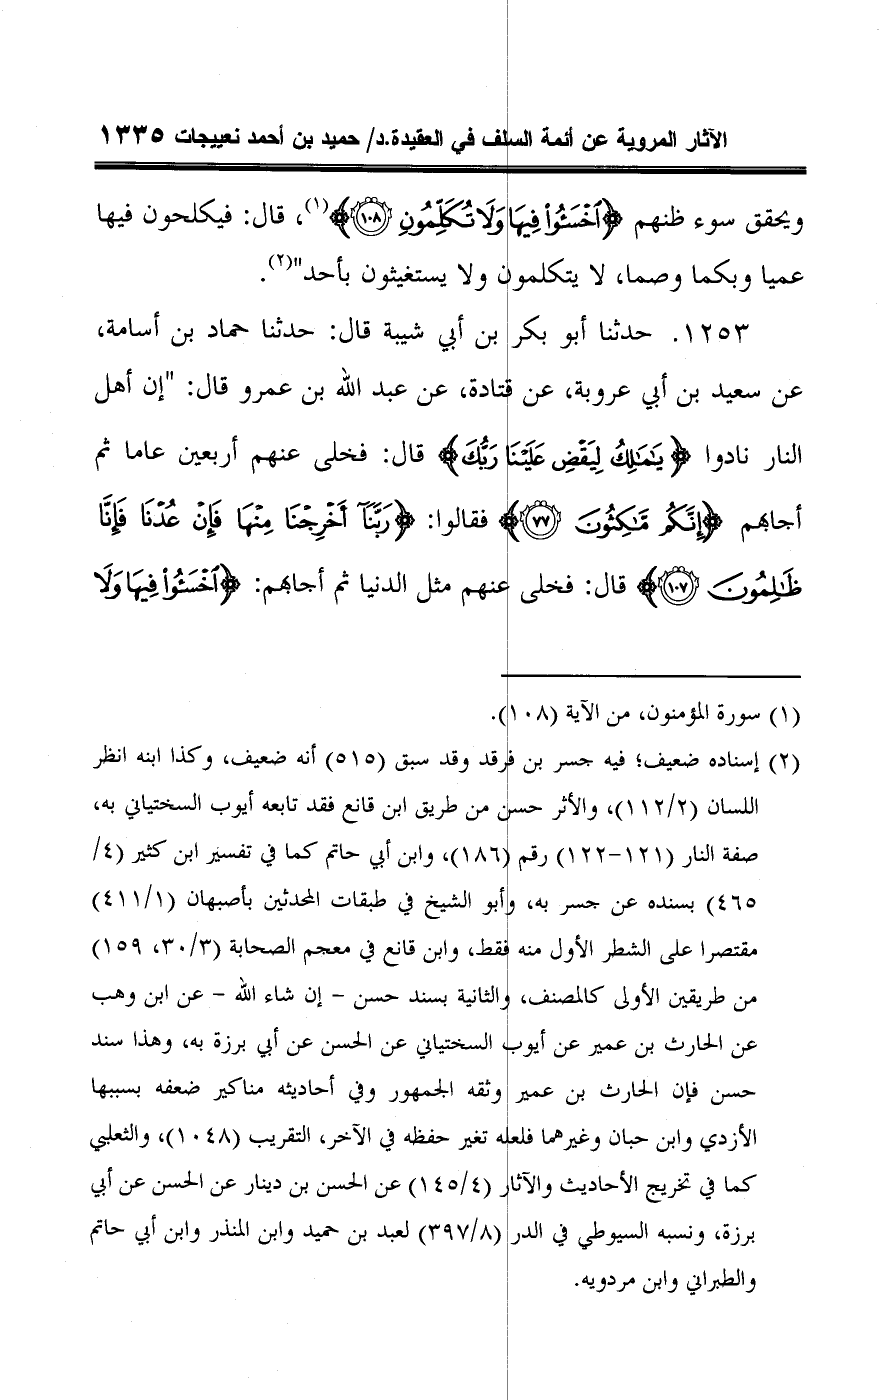 الآثار المروية عن أئمة السلف في العقيدة.د/ حميد بن أحمد نعييجات ١٣٣٥
ويحقق سوء ظنهم ﴿ٱخۡسَـُٔواْ فِيهَا وَلَا تُكَلِّمُونِ ١٠٨﴾(١)، قال: فيكلحون فيها
عميا وبكما وصما، لا يتكلمون ولا يستغيثون بأحد"(٢).
١٢٥٣. حدثنا أبو بكر بن أبي شيبة قال: حدثنا حماد بن أسامة،
عن سعيد بن أبي عروبة، عن قتادة، عن عبد الله بن عمرو قال: "إن أهل
النار نادوا ﴿يَٰمَٰلِكُ لِيَقۡضِ عَلَيۡنَا رَبُّكَ﴾ قال: فخلى عنهم أربعين عاما ثم
أجابهم ﴿إِنَّكُم مَّٰكِثُونَ ٧٧﴾ فقالوا: ﴿رَبَّنَآ أَخۡرِجۡنَا مِنۡهَا فَإِنۡ عُدۡنَا فَإِنَّا
ظَٰلِمُونَ ١٠٧﴾ قال: فخلى عنهم مثل الدنيا ثم أجابهم: ﴿ٱخۡسَـُٔواْ فِيهَا وَلَا
(١) سورة المؤمنون، من الآية (١٠٨).
(٢) إسناده ضعيف؛ فيه جسر بن فرقد وقد سبق (٥١٥) أنه ضعيف، وكذا ابنه انظر
اللسان (١١٢/٢)، والأثر حسن من طريق ابن قانع فقد تابعه أيوب السختياني به،
صفة النار (١٢١-١٢٢) رقم (١٨٦)، وابن أبي حاتم كما في تفسير ابن كثير (٤/
٤٦٥) بسنده عن جسر به، وأبو الشيخ في طبقات المحدثين بأصبهان (٤١١/١)
مقتصرا على الشطر الأول منه فقط، وابن قانع في معجم الصحابة (٣٠/٣، ١٥٩)
من طريقين الأولى كالمصنف، والثانية بسند حسن - إن شاء الله - عن ابن وهب
عن الحارث بن عمير عن أيوب السختياني عن الحسن عن أبي برزة به، وهذا سند
حسن فإن الحارث بن عمير وثقه الجمهور وفي أحاديثه مناكير ضعفه بسببها
الأزدي وابن حبان وغيرهما فلعله تغير حفظه في الآخر، التقريب (١٠٤٨)، والثعلبي
كما في تخريج الأحاديث والآثار (١٤٥/٤) عن الحسن بن دينار عن الحسن عن أبي
برزة، ونسبه السيوطي في الدر (٣٩٧/٨) لعبد بن حميد وابن المنذر وابن أبي حاتم
والطبراني وابن مردويه.